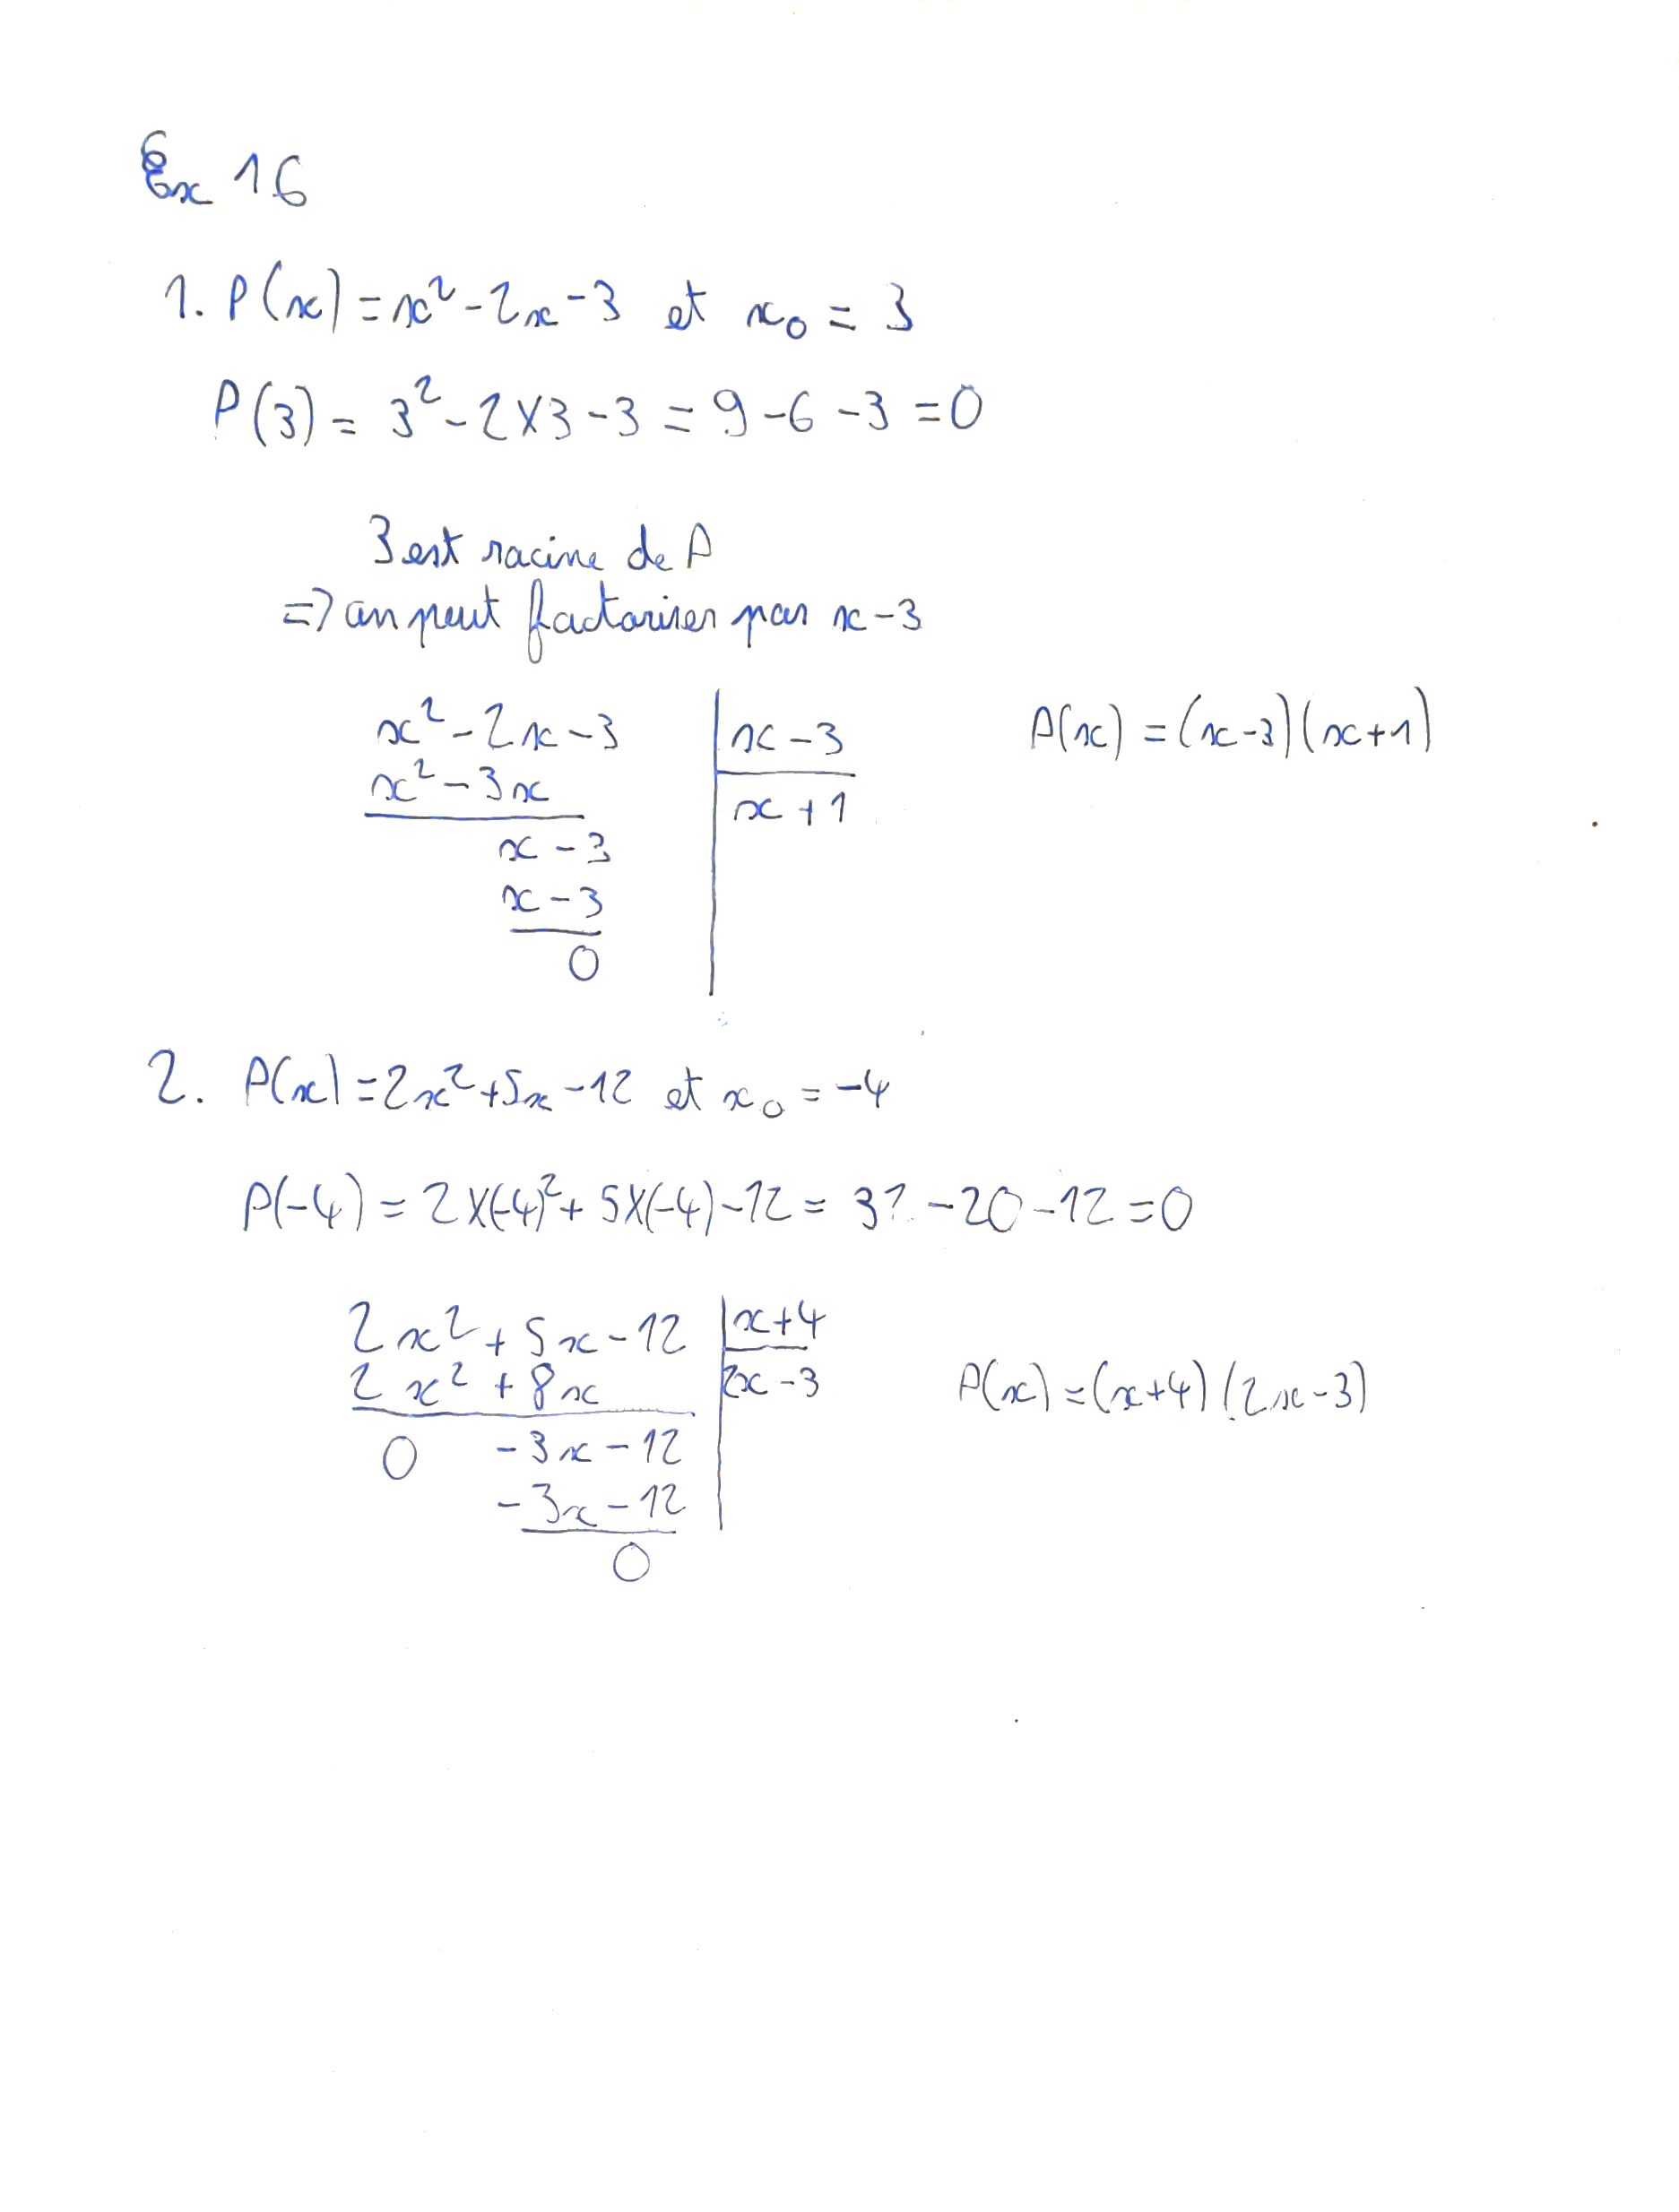 Ex 16
1. P(x) = x² - 2x - 3 et x₀ = 3
P(3) = 3² - 2×3 - 3 = 9 - 6 - 3 = 0
3 est racine de P
=> on peut factoriser par x - 3
x² - 2x - 3 | x - 3
x² - 3x | x + 1
x - 3
x - 3
0
P(x) = (x-3)(x+1)
2. P(x) = 2x² + 5x - 12 et x₀ = -4
P(-4) = 2×(-4)² + 5×(-4) - 12 = 32 - 20 - 12 = 0
2x² + 5x - 12 | x + 4
2x² + 8x | 2x - 3
0 - 3x - 12
- 3x - 12
0
P(x) = (x+4)(2x-3)